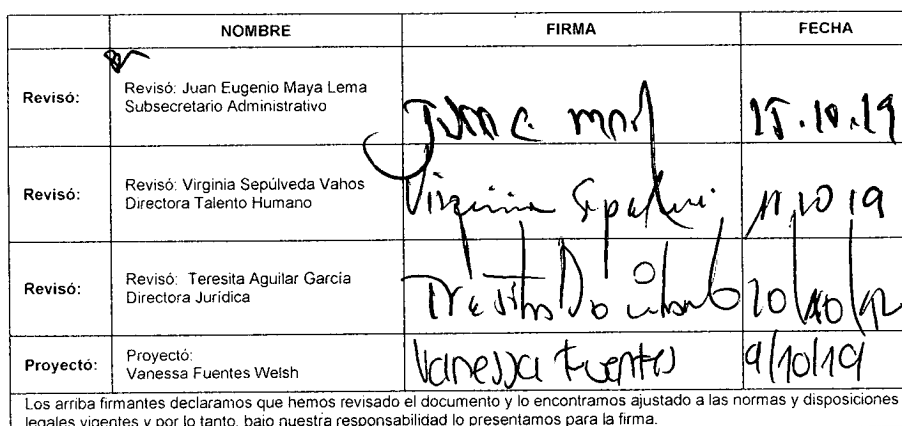 NOMBRE FIRMA FECHA
Revisó: Revisó: Juan Eugenio Maya Lema
Subsecretario Administrativo
15.10.19
Revisó: Revisó: Virginia Sepúlveda Vahos
Directora Talento Humano
Virginia
11.10 19
Revisó: Revisó: Teresita Aguilar García
Directora Jurídica
Proyectó: Proyectó:
Vanessa Fuentes Welsh
Vanessa Fuentes 9/10/19
Los arriba firmantes declaramos que hemos revisado el documento y lo encontramos ajustado a las normas y disposiciones
legales vigentes y por lo tanto, bajo nuestra responsabilidad lo presentamos para la firma.